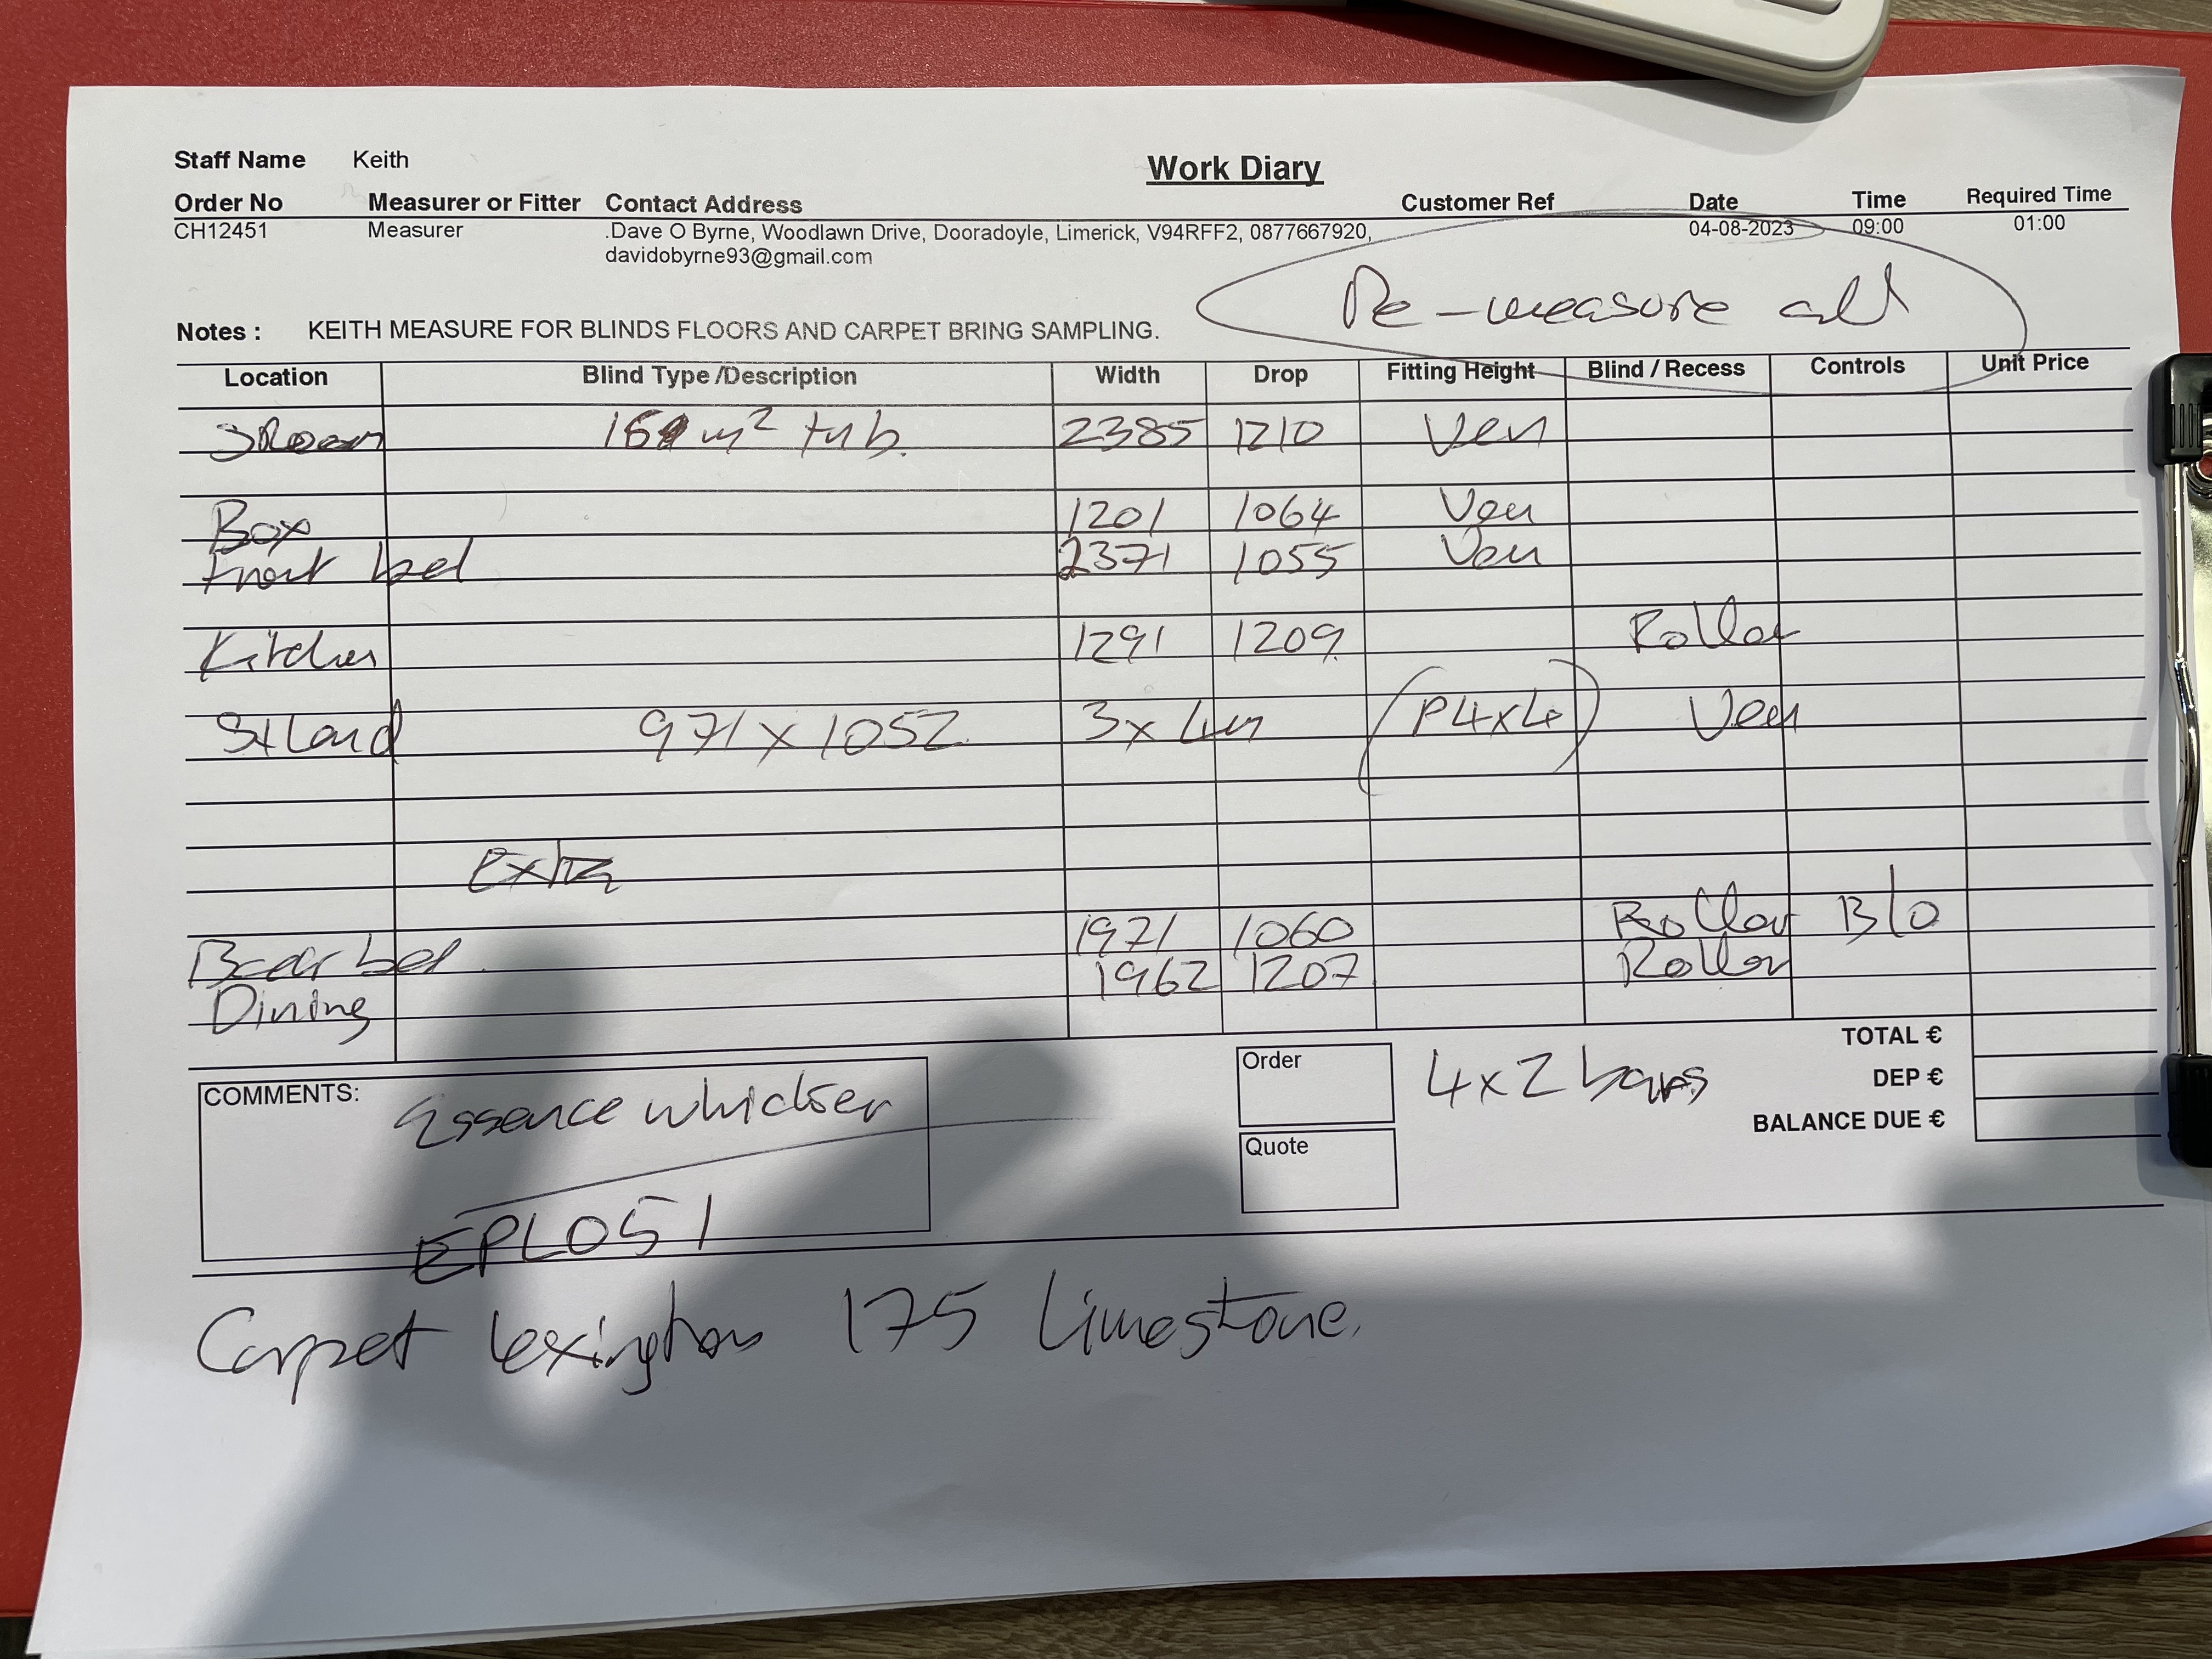 Staff Name Keith
Work Diary
Order No Measurer or Fitter Contact Address Customer Ref Date Time Required Time
CH12451 Measurer .Dave O Byrne, Woodlawn Drive, Dooradoyle, Limerick, V94RFF2, 0877667920, 04-08-2023 09:00 01:00
davidobyrne93@gmail.com
Re-measure all
Notes : KEITH MEASURE FOR BLINDS FLOORS AND CARPET BRING SAMPLING.
Location Blind Type /Description Width Drop Fitting Height Blind / Recess Controls Unit Price
m² tub. 2385 1210 Ven
Box 1201 1064 Ven
Front bed 2371 1055 Ven
Kitchen 1291 1209 Roller
St Land 971 x 1052 3 x 4m (P4x4) Ven
Extra
bed 1971 1060 Roller B/O
Dining 1962 1207 Roller
TOTAL €
DEP €
BALANCE DUE €
COMMENTS: Essence
EPL051
Order 4 x 2 bars
Quote
Carpet Lexington 175 Limestone.